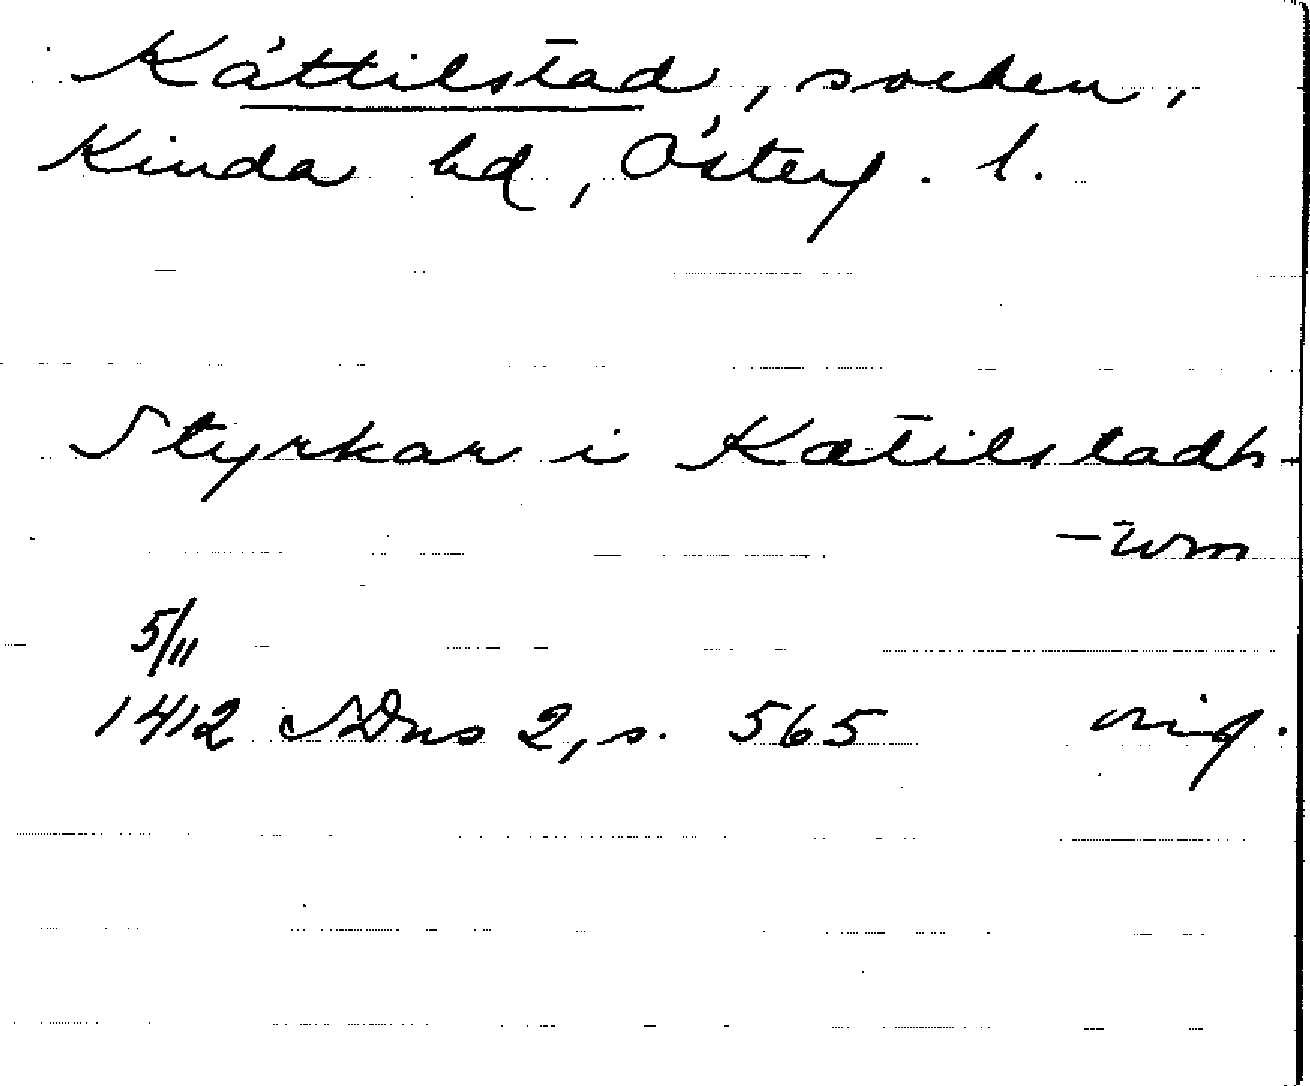 Kättilstad, socken,
Kinda hd, Österg. l.
Styrkar i Kætilstadh-
-um
5/11
1412 SDns 2, s. 565 orig.